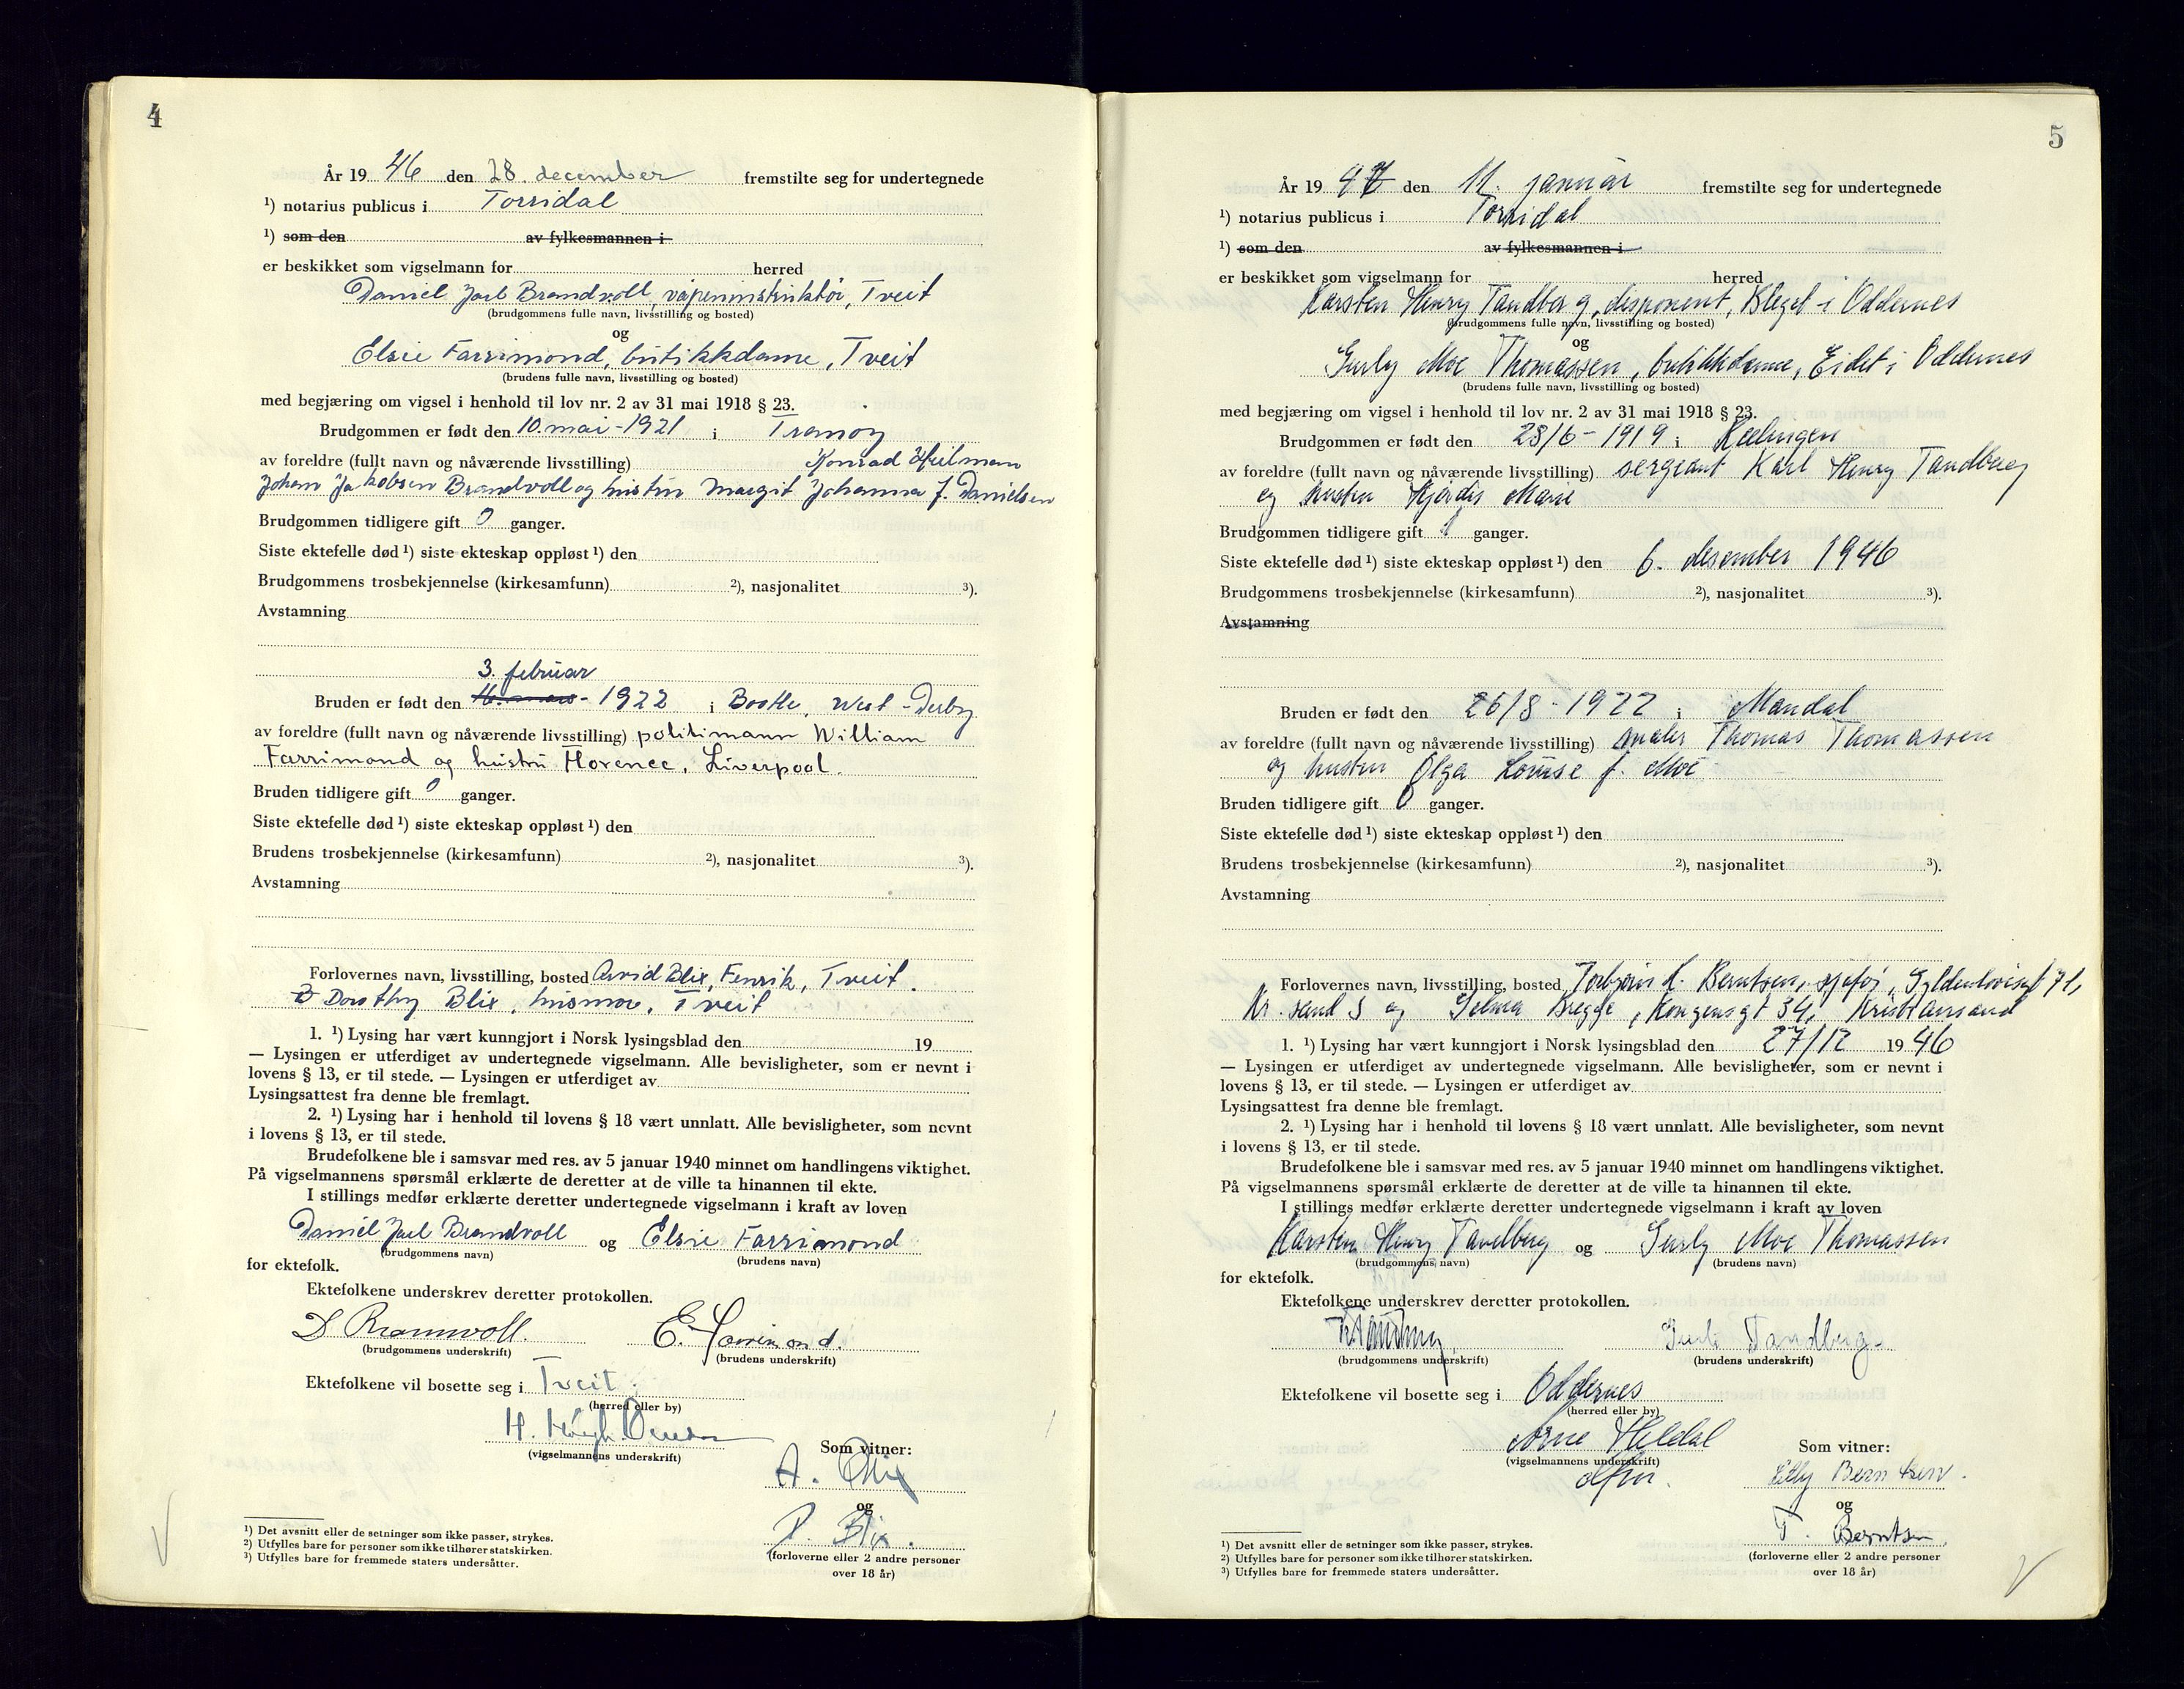 4
År 19 46 den 28. december fremstilte seg for undertegnede
¹) notarius publicus i Torridal
¹) som den av fylkesmannen i
er beskikket som vigselmann for herred
Daniel Jarl Brandvoll, våpeninstruktør, Tveit
(brudgommens fulle navn, livsstilling og bosted)
og
Elsie Farrimond, butikkdame, Tveit
(brudens fulle navn, livsstilling og bosted)
med begjæring om vigsel i henhold til lov nr. 2 av 31 mai 1918 § 23.
Brudgommen er født den 10. mai - 1921 i Tranøy
av foreldre (fullt navn og nåværende livsstilling) Konrad Hilman
Johan Jakobsen Brandvoll og hustru Margit Johanna f. Danielsen
Brudgommen tidligere gift 0 ganger.
Siste ektefelle død ¹) siste ekteskap oppløst ¹) den
Brudgommens trosbekjennelse (kirkesamfunn) ²), nasjonalitet ³).
Avstamning
3. februar
Bruden er født den - 1922 i Bootle, West-Derby
av foreldre (fullt navn og nåværende livsstilling) politimann William
Farrimond og hustru Florence, Liverpool.
Bruden tidligere gift 0 ganger.
Siste ektefelle død ¹) siste ekteskap oppløst ¹) den
Brudens trosbekjennelse (kirkesamfunn) ²), nasjonalitet ³).
Avstamning
Forlovernes navn, livsstilling, bosted Arvid Blix, Fenrik, Tveit.
Dorothy Blix, husmor, Tveit
1. ¹) Lysing har vært kunngjort i Norsk lysingsblad den 19
— Lysingen er utferdiget av undertegnede vigselmann. Alle bevisligheter, som er nevnt i
lovens § 13, er til stede. — Lysingen er utferdiget av
Lysingsattest fra denne ble fremlagt.
2. ¹) Lysing har i henhold til lovens § 18 vært unnlatt. Alle bevisligheter, som nevnt
i lovens § 13, er til stede.
Brudefolkene ble i samsvar med res. av 5 januar 1940 minnet om handlingens viktighet.
På vigselmannens spørsmål erklærte de deretter at de ville ta hinannen til ekte.
I stillings medfør erklærte deretter undertegnede vigselmann i kraft av loven
Daniel Jarl Brandvoll og Elsie Farrimond
(brudgommens navn) (brudens navn)
for ektefolk.
Ektefolkene underskrev deretter protokollen.
D Branvoll. E. Farrimond.
(brudgommens underskrift) (brudens underskrift)
Ektefolkene vil bosette seg i Tveit.
(herred eller by)
H.
(vigselmannens underskrift)
Som vitner:
A. Blix
og
D. Blix.
(forloverne eller 2 andre personer
over 18 år)
¹) Det avsnitt eller de setninger som ikke passer, strykes.
²) Utfylles bare for personer som ikke tilhører statskirken.
³) Utfylles bare for fremmede staters undersåtter.
5
År 19 47 den 11. januar fremstilte seg for undertegnede
¹) notarius publicus i Torridal
¹) som den av fylkesmannen i
er beskikket som vigselmann for herred
Karsten Henry Tandberg, disponent, Bleget i Oddernes
(brudgommens fulle navn, livsstilling og bosted)
og
Gurly Moe Thomassen, butikkdame, Eidet i Oddernes
(brudens fulle navn, livsstilling og bosted)
med begjæring om vigsel i henhold til lov nr. 2 av 31 mai 1918 § 23.
Brudgommen er født den 28/6 - 1919 i
av foreldre (fullt navn og nåværende livsstilling) sergeant Karl Henry Tandberg
og hustru Hjørdis Marie
Brudgommen tidligere gift 1 ganger.
Siste ektefelle død ¹) siste ekteskap oppløst ¹) den 6. desember 1946
Brudgommens trosbekjennelse (kirkesamfunn) ²), nasjonalitet ³).
Avstamning
Bruden er født den 26/8 - 1922 i Mandal
av foreldre (fullt navn og nåværende livsstilling) maler Thomas Thomassen
og hustru Olga Louise f. Moe
Bruden tidligere gift 0 ganger.
Siste ektefelle død ¹) siste ekteskap oppløst ¹) den
Brudens trosbekjennelse (kirkesamfunn) ²), nasjonalitet ³).
Avstamning
Forlovernes navn, livsstilling, bosted Torbjørn A. Berntsen, sjåfør, Gyldenløvesgt 71,
Kr. sand S og Selma Bregge, Kongensgt 34, Kristiansand
1. ¹) Lysing har vært kunngjort i Norsk lysingsblad den 27/12 19 46
— Lysingen er utferdiget av undertegnede vigselmann. Alle bevisligheter, som er nevnt i
lovens § 13, er til stede. — Lysingen er utferdiget av
Lysingsattest fra denne ble fremlagt.
2. ¹) Lysing har i henhold til lovens § 18 vært unnlatt. Alle bevisligheter, som nevnt
i lovens § 13, er til stede.
Brudefolkene ble i samsvar med res. av 5 januar 1940 minnet om handlingens viktighet.
På vigselmannens spørsmål erklærte de deretter at de ville ta hinannen til ekte.
I stillings medfør erklærte deretter undertegnede vigselmann i kraft av loven
Karsten Henry Tandberg og Gurly Moe Thomassen
(brudgommens navn) (brudens navn)
for ektefolk.
Ektefolkene underskrev deretter protokollen.
K Tandberg Gurli Tandberg
(brudgommens underskrift) (brudens underskrift)
Ektefolkene vil bosette seg i Oddernes
(herred eller by)
Arne Heldal
(vigselmannens underskrift)
Som vitner:
Berntsen.
og
T. Berntsen
(forloverne eller 2 andre personer
over 18 år)
¹) Det avsnitt eller de setninger som ikke passer, strykes.
²) Utfylles bare for personer som ikke tilhører statskirken.
³) Utfylles bare for fremmede staters undersåtter.